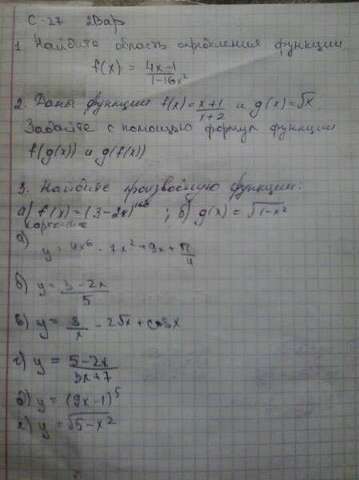 С-27 2Вар
1. Найдите область определения функции
f(x) = (4x-1)/(1-16x²)
2. Даны функции f(x) = (x+1)/(x+2) и g(x) = √x
Задайте с помощью формул функции
f(g(x)) и g(f(x))
3. Найдите производную функции:
а) f(x) = (3-2x) ; б) g(x) = √(1-x²)
а)
y = 4x⁶ - 2x² + 9x + π/4
б) y = (3-2x)/5
в) y = 3/x - 2√x + cos x
г) y = (5-2x)/(3x+7)
д) y = (9x-1)⁵
е) y = √(5-x²)